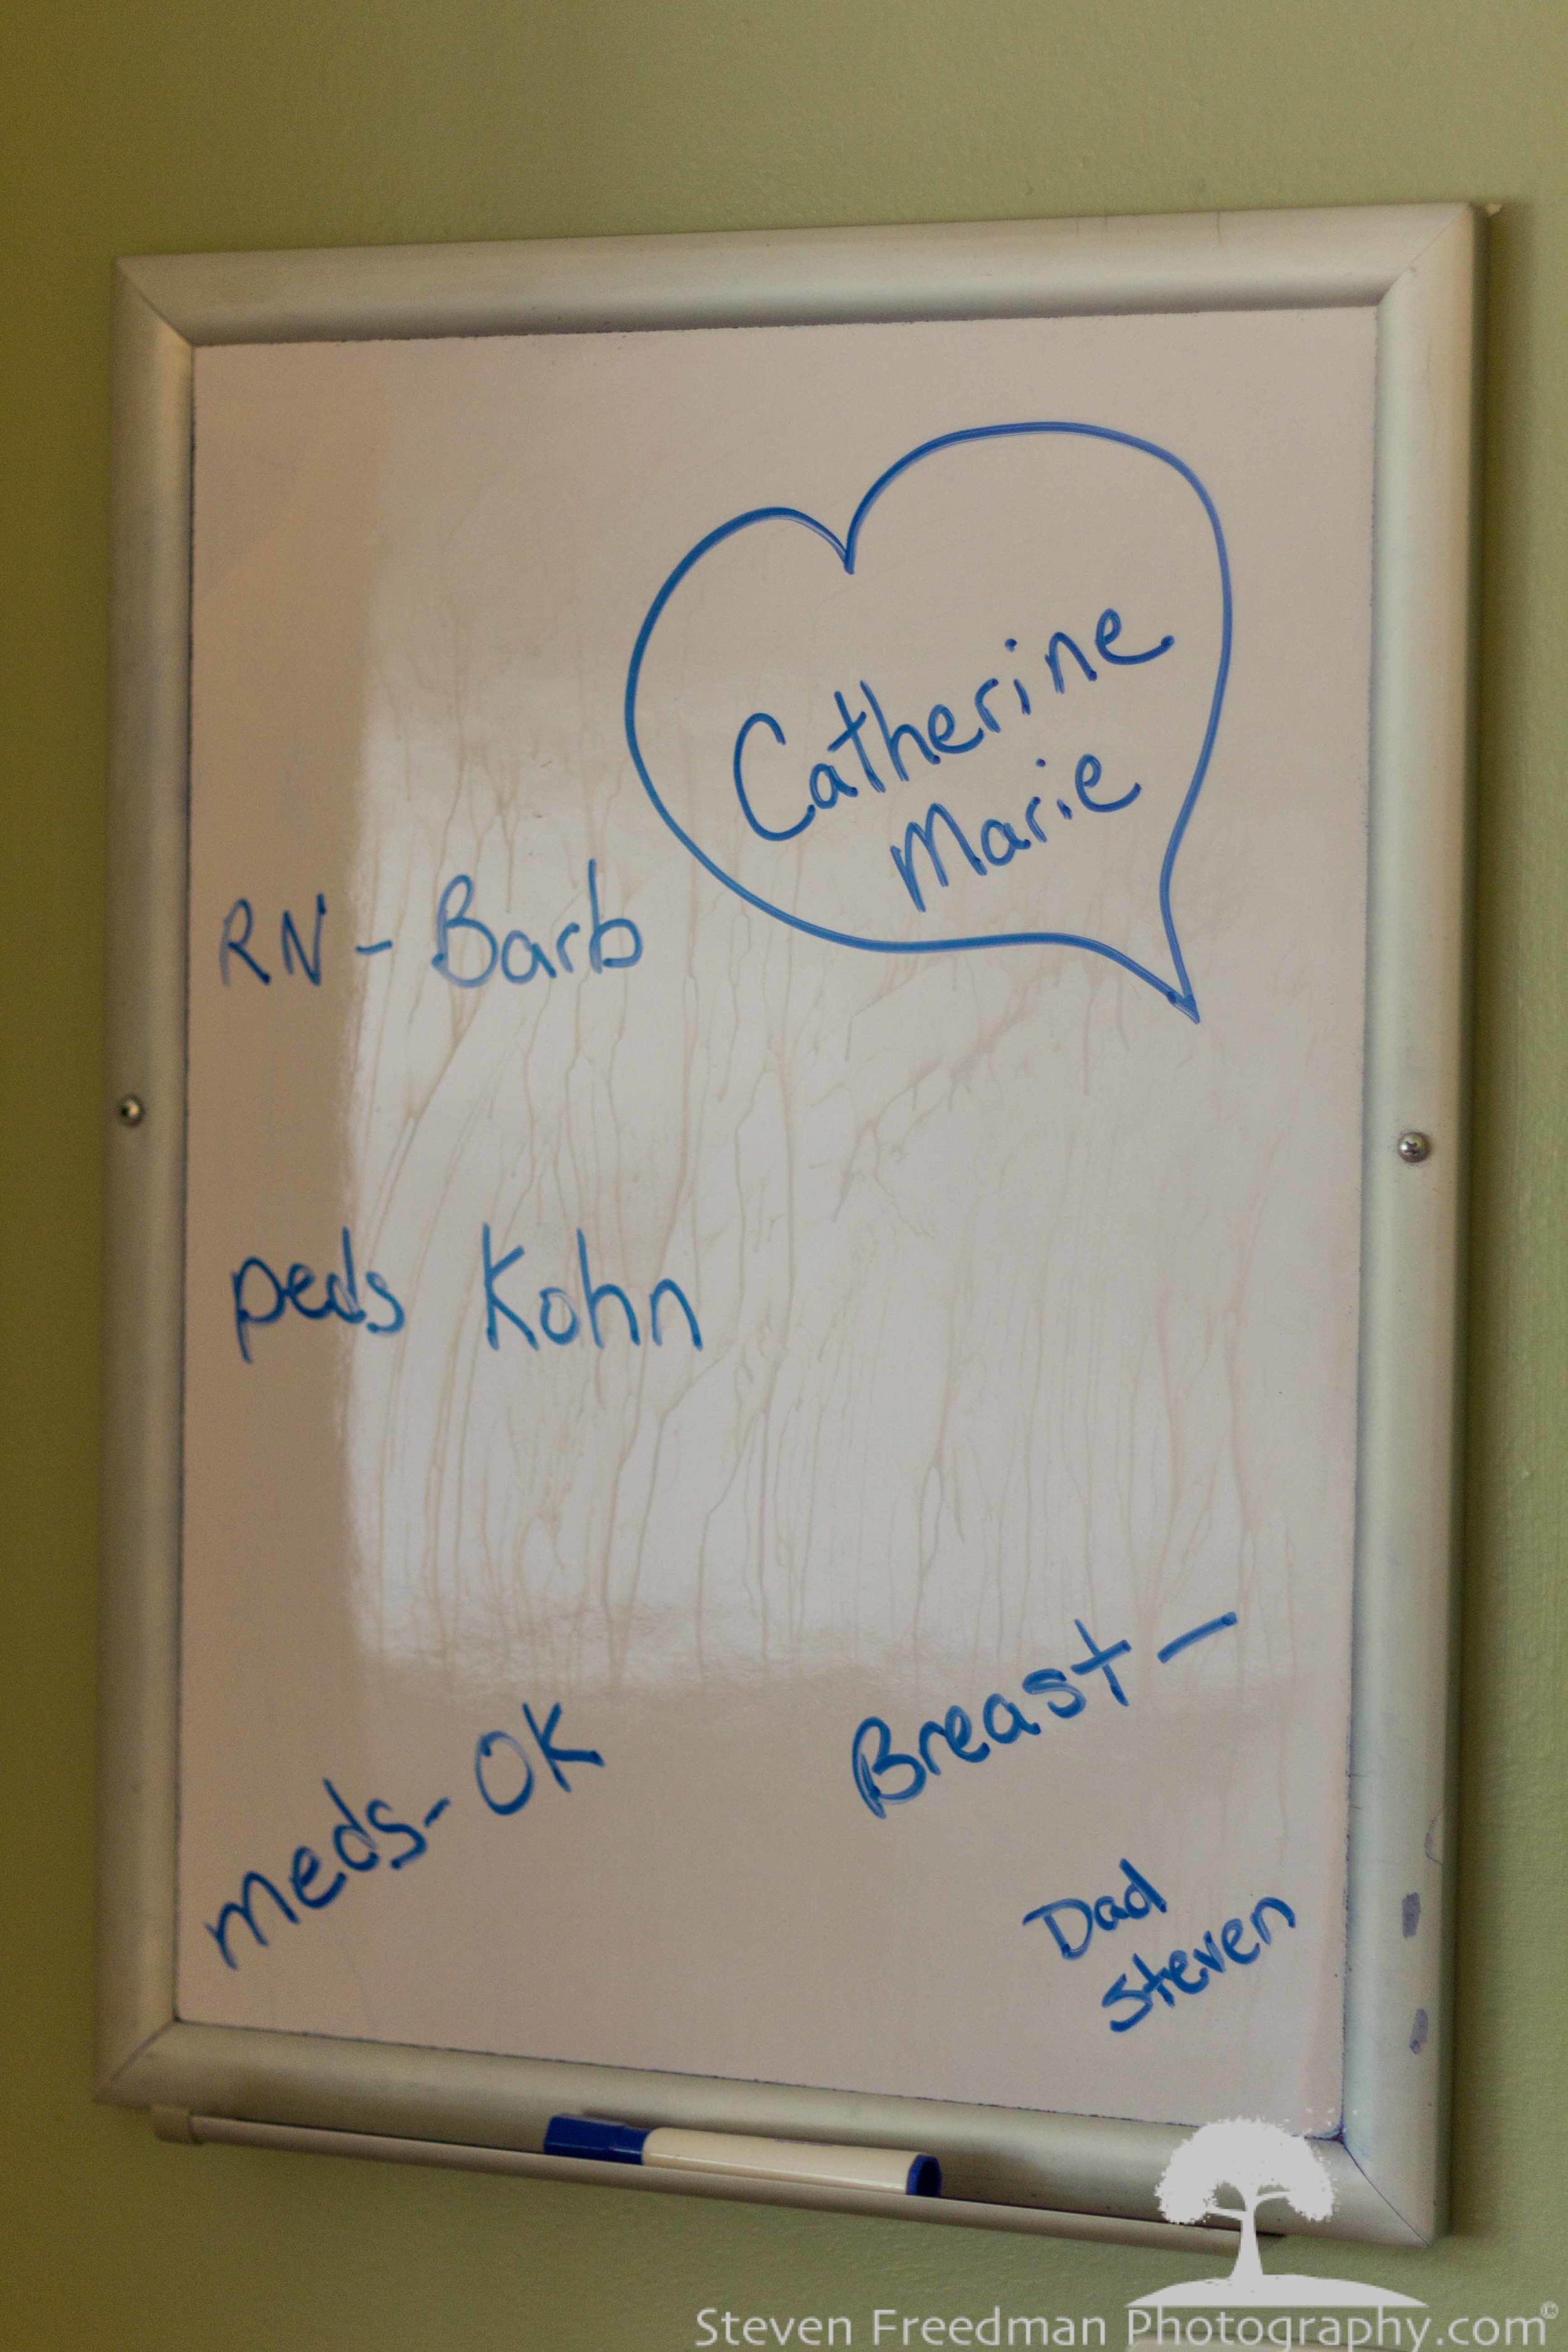 Catherine
Marie
RN - Barb
peds Kohn
meds - OK
Breast -
Dad
Steven
Steven Freedman Photography.com©